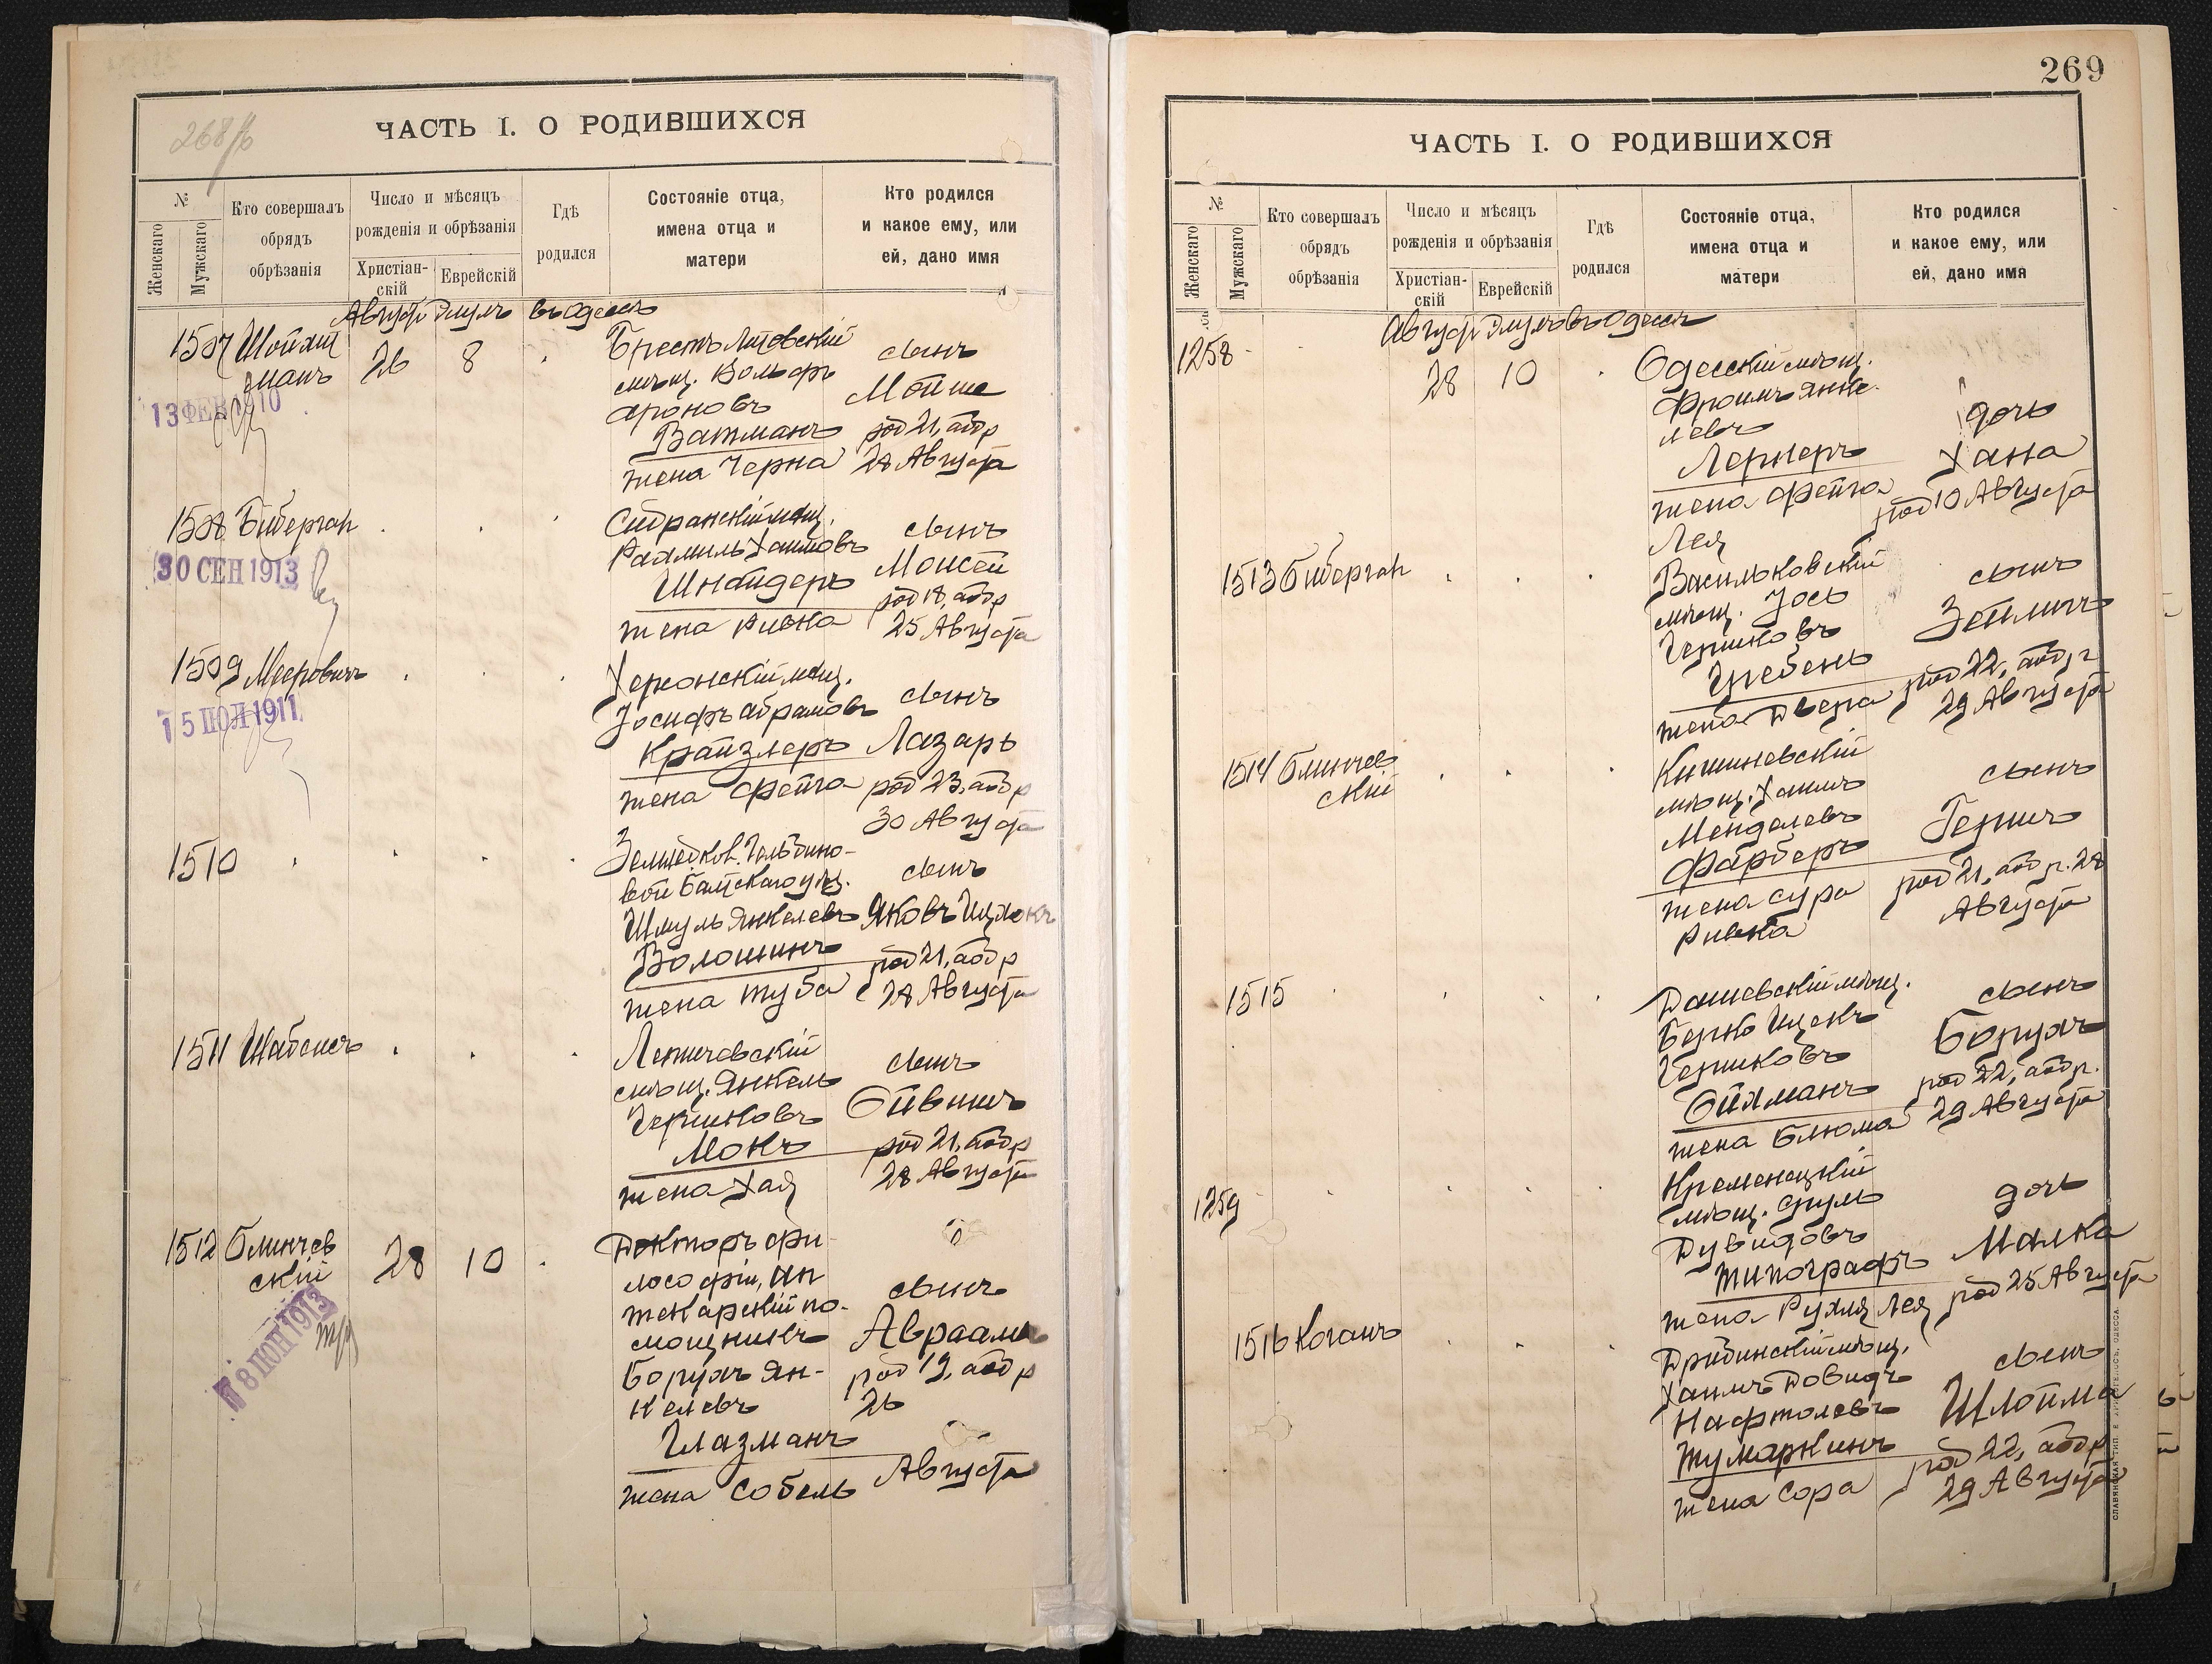 268 об
ЧАСТЬ I. О РОДИВШИХСЯ
№
Женскаго
Мужскаго
Кто совершалъ
обрядъ
обрѣзанія
Число и мѣсяцъ
рожденія и обрѣзанія
Христіан-
скій
Еврейскій
Гдѣ
родился
Состояніе отца,
имена отца и
матери
Кто родился
и какое ему, или
ей, дано имя
Август Элулъ въ Одессѣ
1507 Шойхет
манъ
26 8
13 ФЕВ 1910
Брестъ Литовскій
мѣщ. Вольфъ
Ароновъ
Ватманъ
жена Черна
сынъ
Мойше
род 21, абр
28 Августа
1508 Биберган
30 СЕН 1913
мѣщ.
Рахмиль Хаимовъ
Шнайдеръ
жена Ривка
сынъ
Моисей
род 18, абр
25 Августа
1509 Меерович
15 ІЮЛ 1911
Херсонскій мѣщ.
Іосифъ Абрамовъ
Крайзлеръ
жена Фейга
сынъ
Лазарь
род 23, абр
30 Августа
1510
Балтскаго
Шмуль Янкелевъ
Волошинъ
жена Туба
сынъ
Яковъ Ицхокъ
род 21, абр
28 Августа
1511 Шабсисъ
Летичевскій
мѣщ. Янкель
Гершковъ
Мокъ
жена Хая
сынъ
Ойвишъ
род 21, абр
28 Августа
1512 Блинчев
скій
28 10
8 ІЮН 1913
Докторъ фи-
лософіи, ап
текарскій по-
мощникъ
Борухъ Ян-
келевъ
Глазманъ
жена Собель
сынъ
Авраамъ
род 19, абр
26
Августа
269
ЧАСТЬ I. О РОДИВШИХСЯ
№
Женскаго
Мужскаго
Кто совершалъ
обрядъ
обрѣзанія
Число и мѣсяцъ
рожденія и обрѣзанія
Христіан-
скій
Еврейскій
Гдѣ
родился
Состояніе отца,
имена отца и
матери
Кто родился
и какое ему, или
ей, дано имя
Август Элулъ въ Одессѣ
1258
28 10
Одесскій мѣщ.
Фроимъ Янке-
левъ
Лернеръ
жена Фейга
Лея
дочь
Хана
род 10 Августа
1513 Биберган
Васильковскій
мѣщ. Іось
Гершковъ
Гребень
жена Двера
сынъ
Зейлигъ
род 22, абр
29 Августа
1514 Блинчев
скій
Кишиневскій
мѣщ. Хаимъ
Менделевъ
Фарберъ
жена Сура
Ривка
сынъ
Гершъ
род 21, абр. 28
Августа
1515
Дашевскій мѣщ.
Берко Ицекъ
Гершковъ
Ойхманъ
жена Блюма
сынъ
Борухъ
род 22, абр.
29 Августа
1259
Кременецкій
мѣщ. Сруль
Дувидовъ
Типографъ
жена Рухля Лея
дочь
Малка
род 25 Августа
1516 Коганъ
Дрибинскій мѣщ.
Хаимъ Довидъ
Нафтолевъ
Тумаркинъ
жена Сора
сынъ
Шлойма
род 22, абр
29 Августа